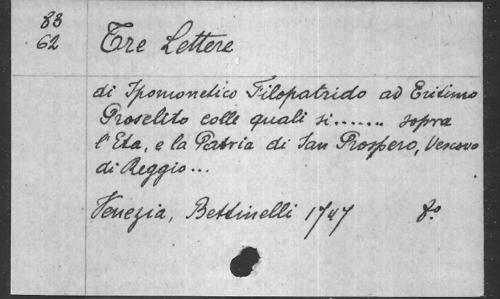 83
62
Tre Lettere
di Ipomonetico Filopatrido ad Eritimo
Proselito colle quali si....... sopra
l'Eta, e la Patria di San Prospero, Vescovo
di Reggio...
Venezia, Bettinelli 1747 8º